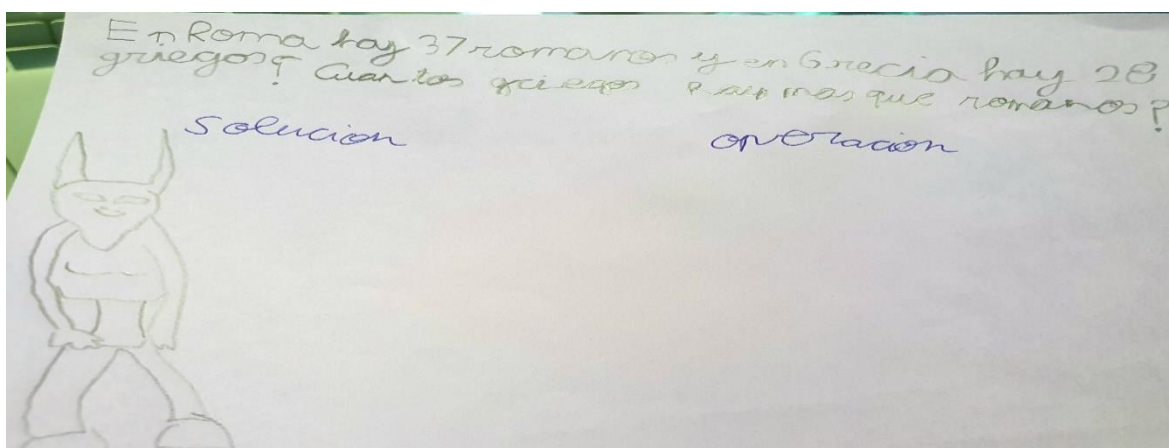 En Roma hay 37 romanos y en Grecia hay 28
griegos ¿ Cuantos griegos hay mas que romanos?
solucion operacion